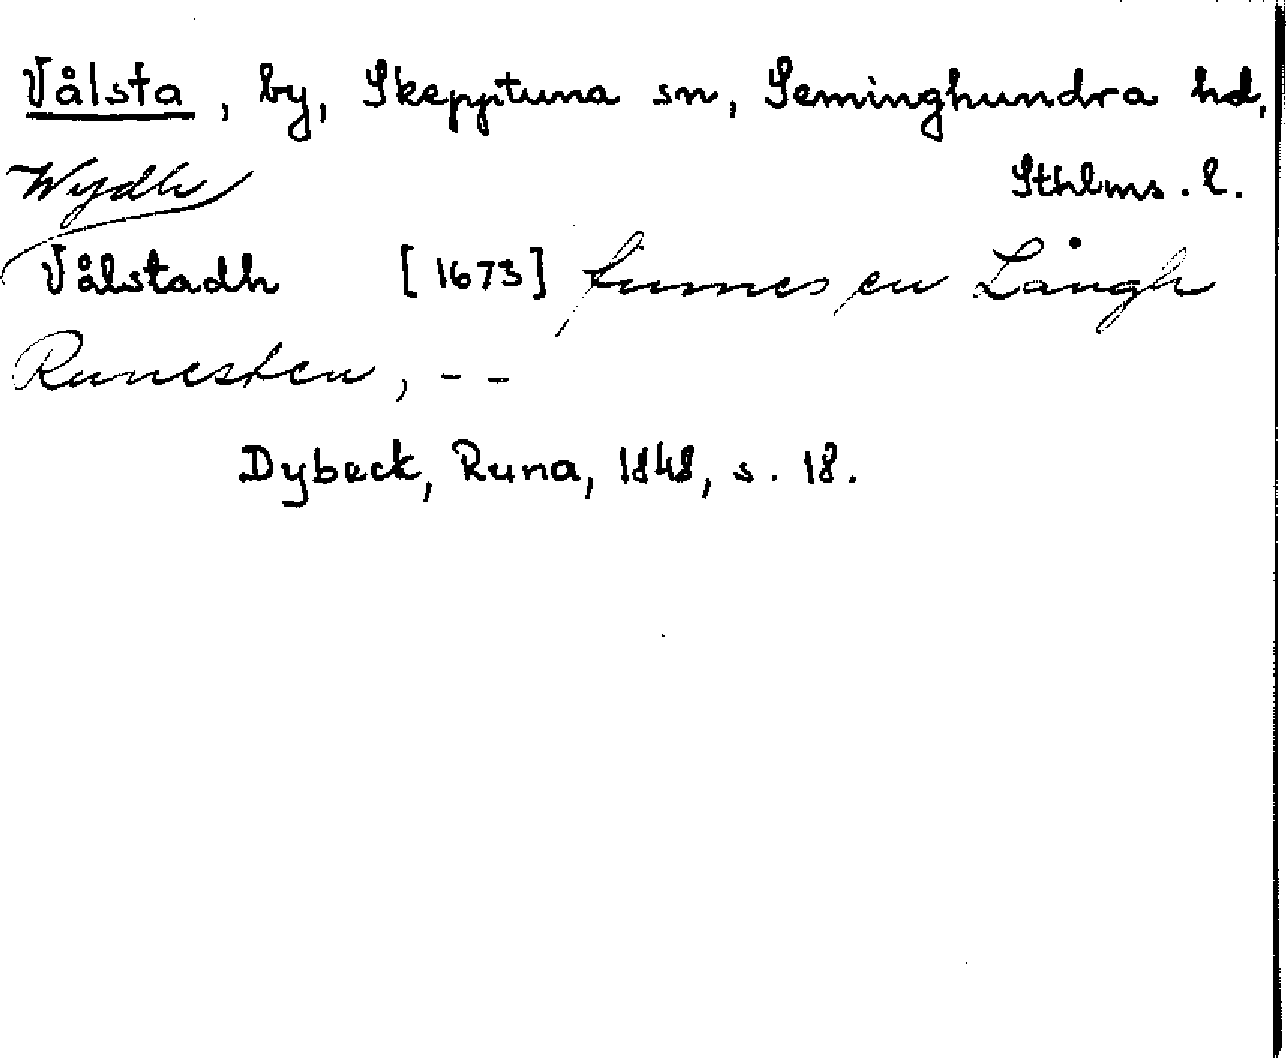 Vålsta, by, Skepptuna sn, Seminghundra hd,
Sthlms. l.
Wydh
Vålstadh [1673] finnes en Långh
Runesten, - -
Dybeck, Runa, 1848, s. 18.